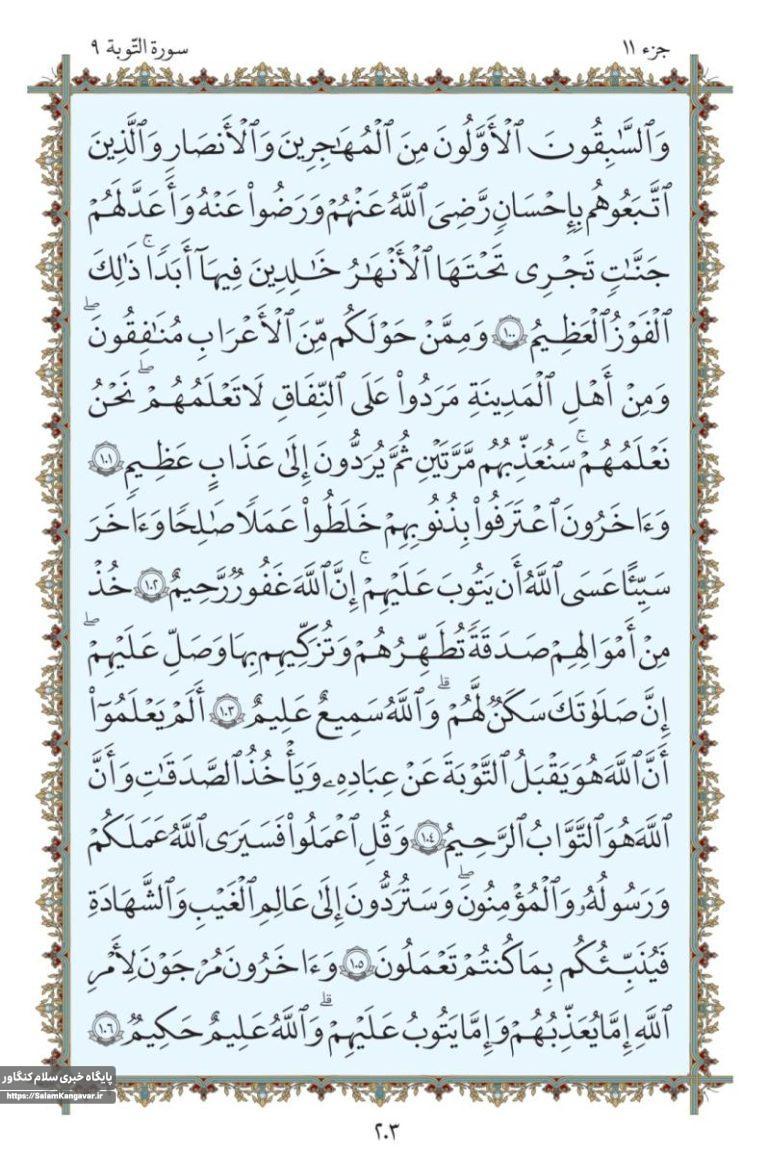 جزء ۱۱
سورة التّوبة ۹
وَٱلسَّٰبِقُونَ ٱلْأَوَّلُونَ مِنَ ٱلْمُهَٰجِرِينَ وَٱلْأَنصَارِ وَٱلَّذِينَ
ٱتَّبَعُوهُم بِإِحْسَٰنٍ رَّضِىَ ٱللَّهُ عَنْهُمْ وَرَضُوا۟ عَنْهُ وَأَعَدَّ لَهُمْ
جَنَّٰتٍ تَجْرِى تَحْتَهَا ٱلْأَنْهَٰرُ خَٰلِدِينَ فِيهَآ أَبَدًا ۚ ذَٰلِكَ
ٱلْفَوْزُ ٱلْعَظِيمُ ۝١٠٠ وَمِمَّنْ حَوْلَكُم مِّنَ ٱلْأَعْرَابِ مُنَٰفِقُونَ ۖ
وَمِنْ أَهْلِ ٱلْمَدِينَةِ مَرَدُوا۟ عَلَى ٱلنِّفَاقِ لَا تَعْلَمُهُمْ ۖ نَحْنُ
نَعْلَمُهُمْ ۚ سَنُعَذِّبُهُم مَّرَّتَيْنِ ثُمَّ يُرَدُّونَ إِلَىٰ عَذَابٍ عَظِيمٍ ۝١٠١
وَءَاخَرُونَ ٱعْتَرَفُوا۟ بِذُنُوبِهِمْ خَلَطُوا۟ عَمَلًا صَٰلِحًا وَءَاخَرَ
سَيِّئًا عَسَى ٱللَّهُ أَن يَتُوبَ عَلَيْهِمْ ۚ إِنَّ ٱللَّهَ غَفُورٌ رَّحِيمٌ ۝١٠٢ خُذْ
مِنْ أَمْوَٰلِهِمْ صَدَقَةً تُطَهِّرُهُمْ وَتُزَكِّيهِم بِهَا وَصَلِّ عَلَيْهِمْ ۖ
إِنَّ صَلَوٰتَكَ سَكَنٌ لَّهُمْ ۗ وَٱللَّهُ سَمِيعٌ عَلِيمٌ ۝١٠٣ أَلَمْ يَعْلَمُوٓا۟
أَنَّ ٱللَّهَ هُوَ يَقْبَلُ ٱلتَّوْبَةَ عَنْ عِبَادِهِۦ وَيَأْخُذُ ٱلصَّدَقَٰتِ وَأَنَّ
ٱللَّهَ هُوَ ٱلتَّوَّابُ ٱلرَّحِيمُ ۝١٠٤ وَقُلِ ٱعْمَلُوا۟ فَسَيَرَى ٱللَّهُ عَمَلَكُمْ
وَرَسُولُهُۥ وَٱلْمُؤْمِنُونَ ۖ وَسَتُرَدُّونَ إِلَىٰ عَٰلِمِ ٱلْغَيْبِ وَٱلشَّهَٰدَةِ
فَيُنَبِّئُكُم بِمَا كُنتُمْ تَعْمَلُونَ ۝١٠٥ وَءَاخَرُونَ مُرْجَوْنَ لِأَمْرِ
ٱللَّهِ إِمَّا يُعَذِّبُهُمْ وَإِمَّا يَتُوبُ عَلَيْهِمْ ۗ وَٱللَّهُ عَلِيمٌ حَكِيمٌ ۝١٠٦
پایگاه خبری سلام کنگاور
https://SalamKangavar.ir
۲۰۳